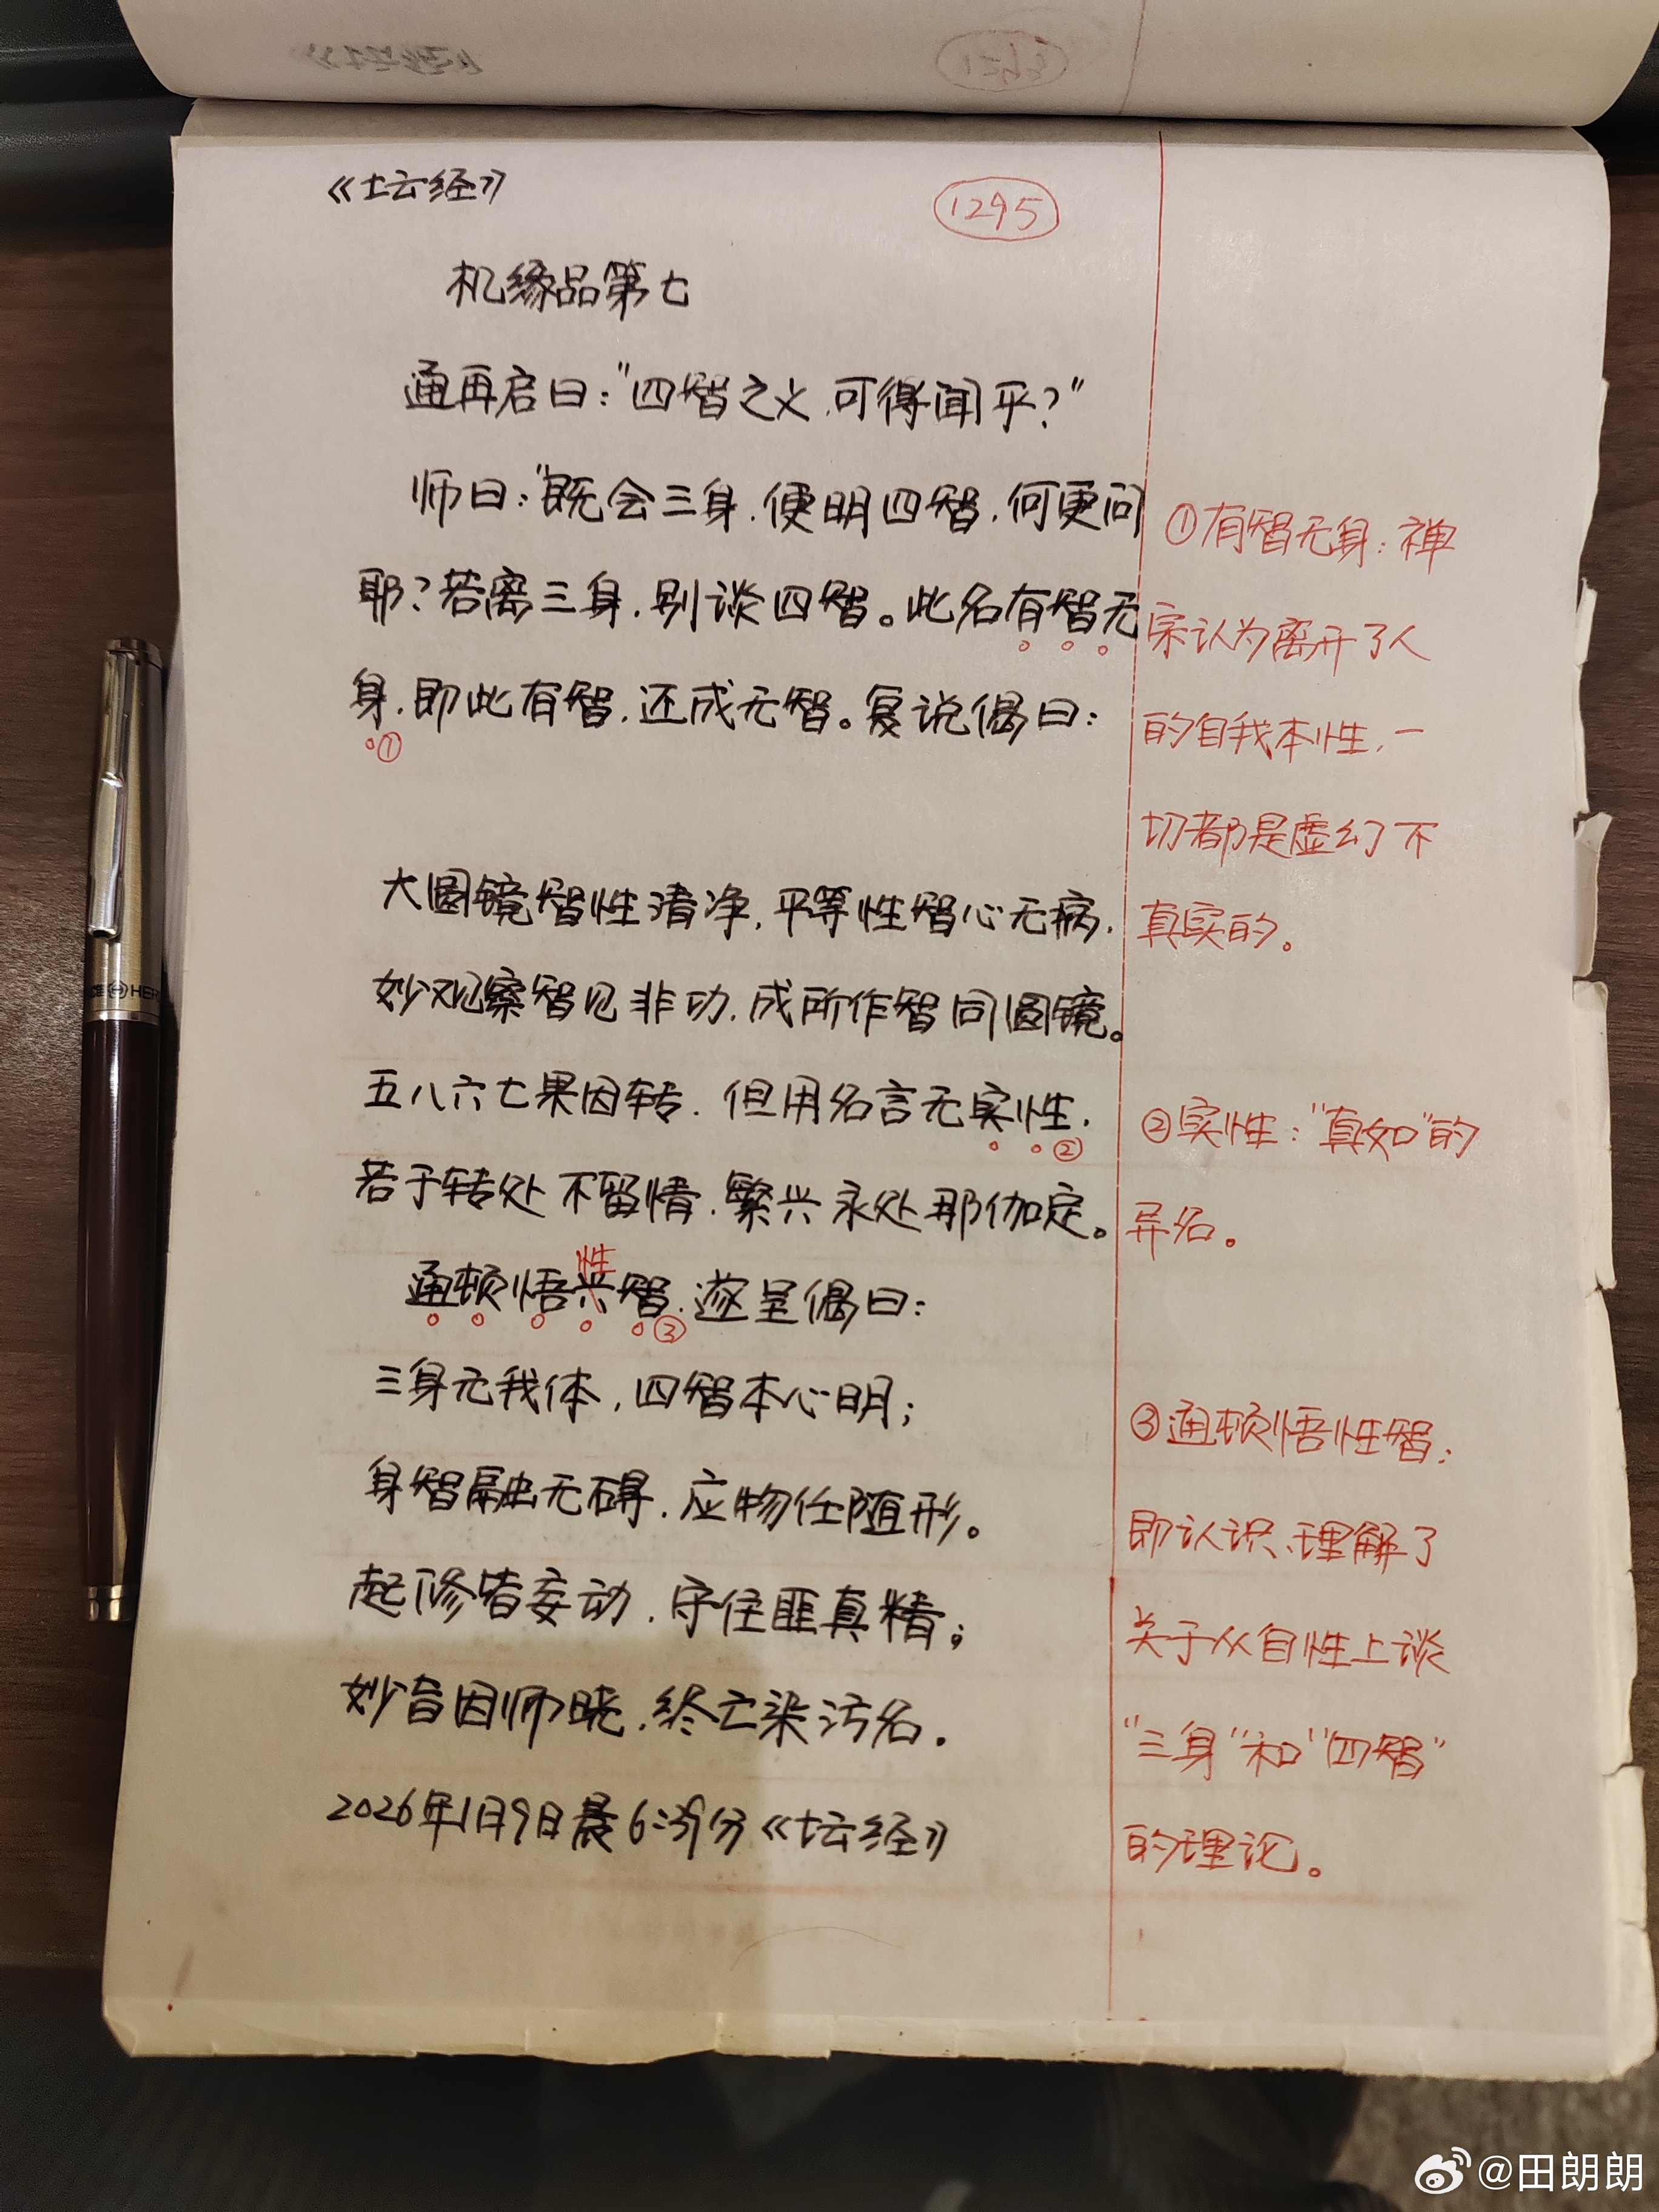 《坛经》
1295
机缘品第七
通再启曰："四智之义,可得闻乎?"
师曰："既会三身,便明四智,何更问
耶?若离三身,别谈四智。此名有智无
身,即此有智,还成无智。复说偈曰：
①
大圆镜智性清净,平等性智心无病,
妙观察智见非功,成所作智同圆镜。
五八六七果因转,但用名言无实性,
②
若于转处不留情,繁兴永处那伽定。
性
通顿悟兴智,遂呈偈曰：
③
三身元我体,四智本心明；
身智融无碍,应物任随形。
起修皆妄动,守住匪真精；
妙旨因师晓,终亡染污名.
2026年1月9日晨6:分《坛经》
①有智无身：禅
宗认为离开了人
的自我本性,一
切都是虚幻不
真实的。
②实性："真如"的
异名。
③通顿悟性智：
即认识、理解了
关于从自性上谈
"三身"和"四智"
的理论。
HER
@田朗朗